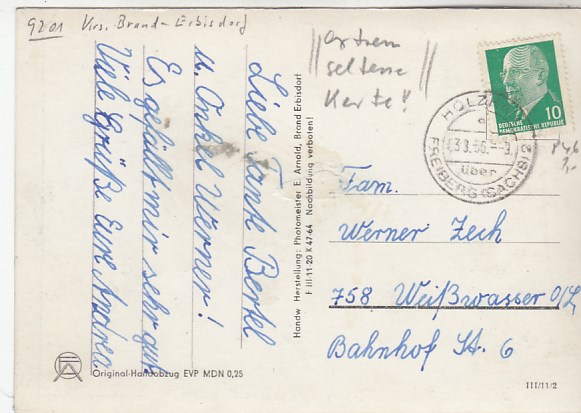 9201 Krs. Brand-Erbisdorf
extrem
seltene
Karte!
Liebe Tante Bertel
u. Onkel Werner!
Es gefällt mir sehr gut
Viele Grüße Eure Andrea
Handw Herstellung: Photomeister E. Arnold, Brand Erbisdorf
F III-11-20 X 47-64 Nachbildung verboten!
10
DEUTSCHE
DEMOKRATISCHE REPUBLIK
über
FREIBERG (SACHS) 2
Fam.
Werner Zech
758 Weißwasser O/L
Bahnhof St. 6
Original-Handabzug EVP MDN 0,25
III/11/2